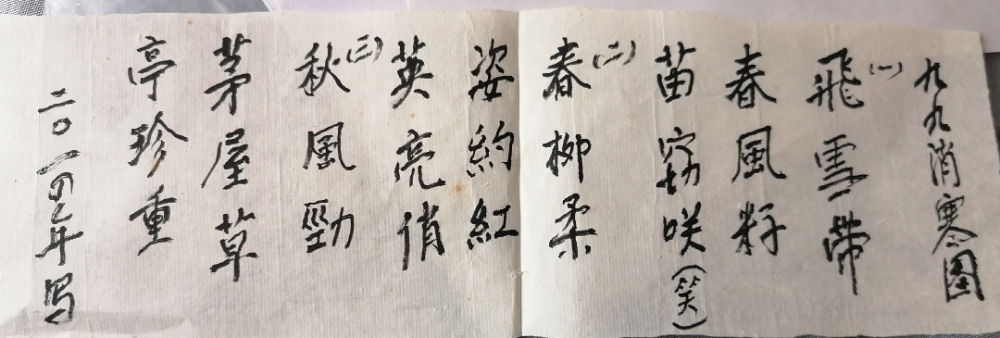 九九消寒图
(一)飛雪帶
春風籽
苗窃咲(笑)
(二)春柳柔
姿約紅
英亮俏
(三)秋風勁
茅屋草
亭珍重
二〇一四年写